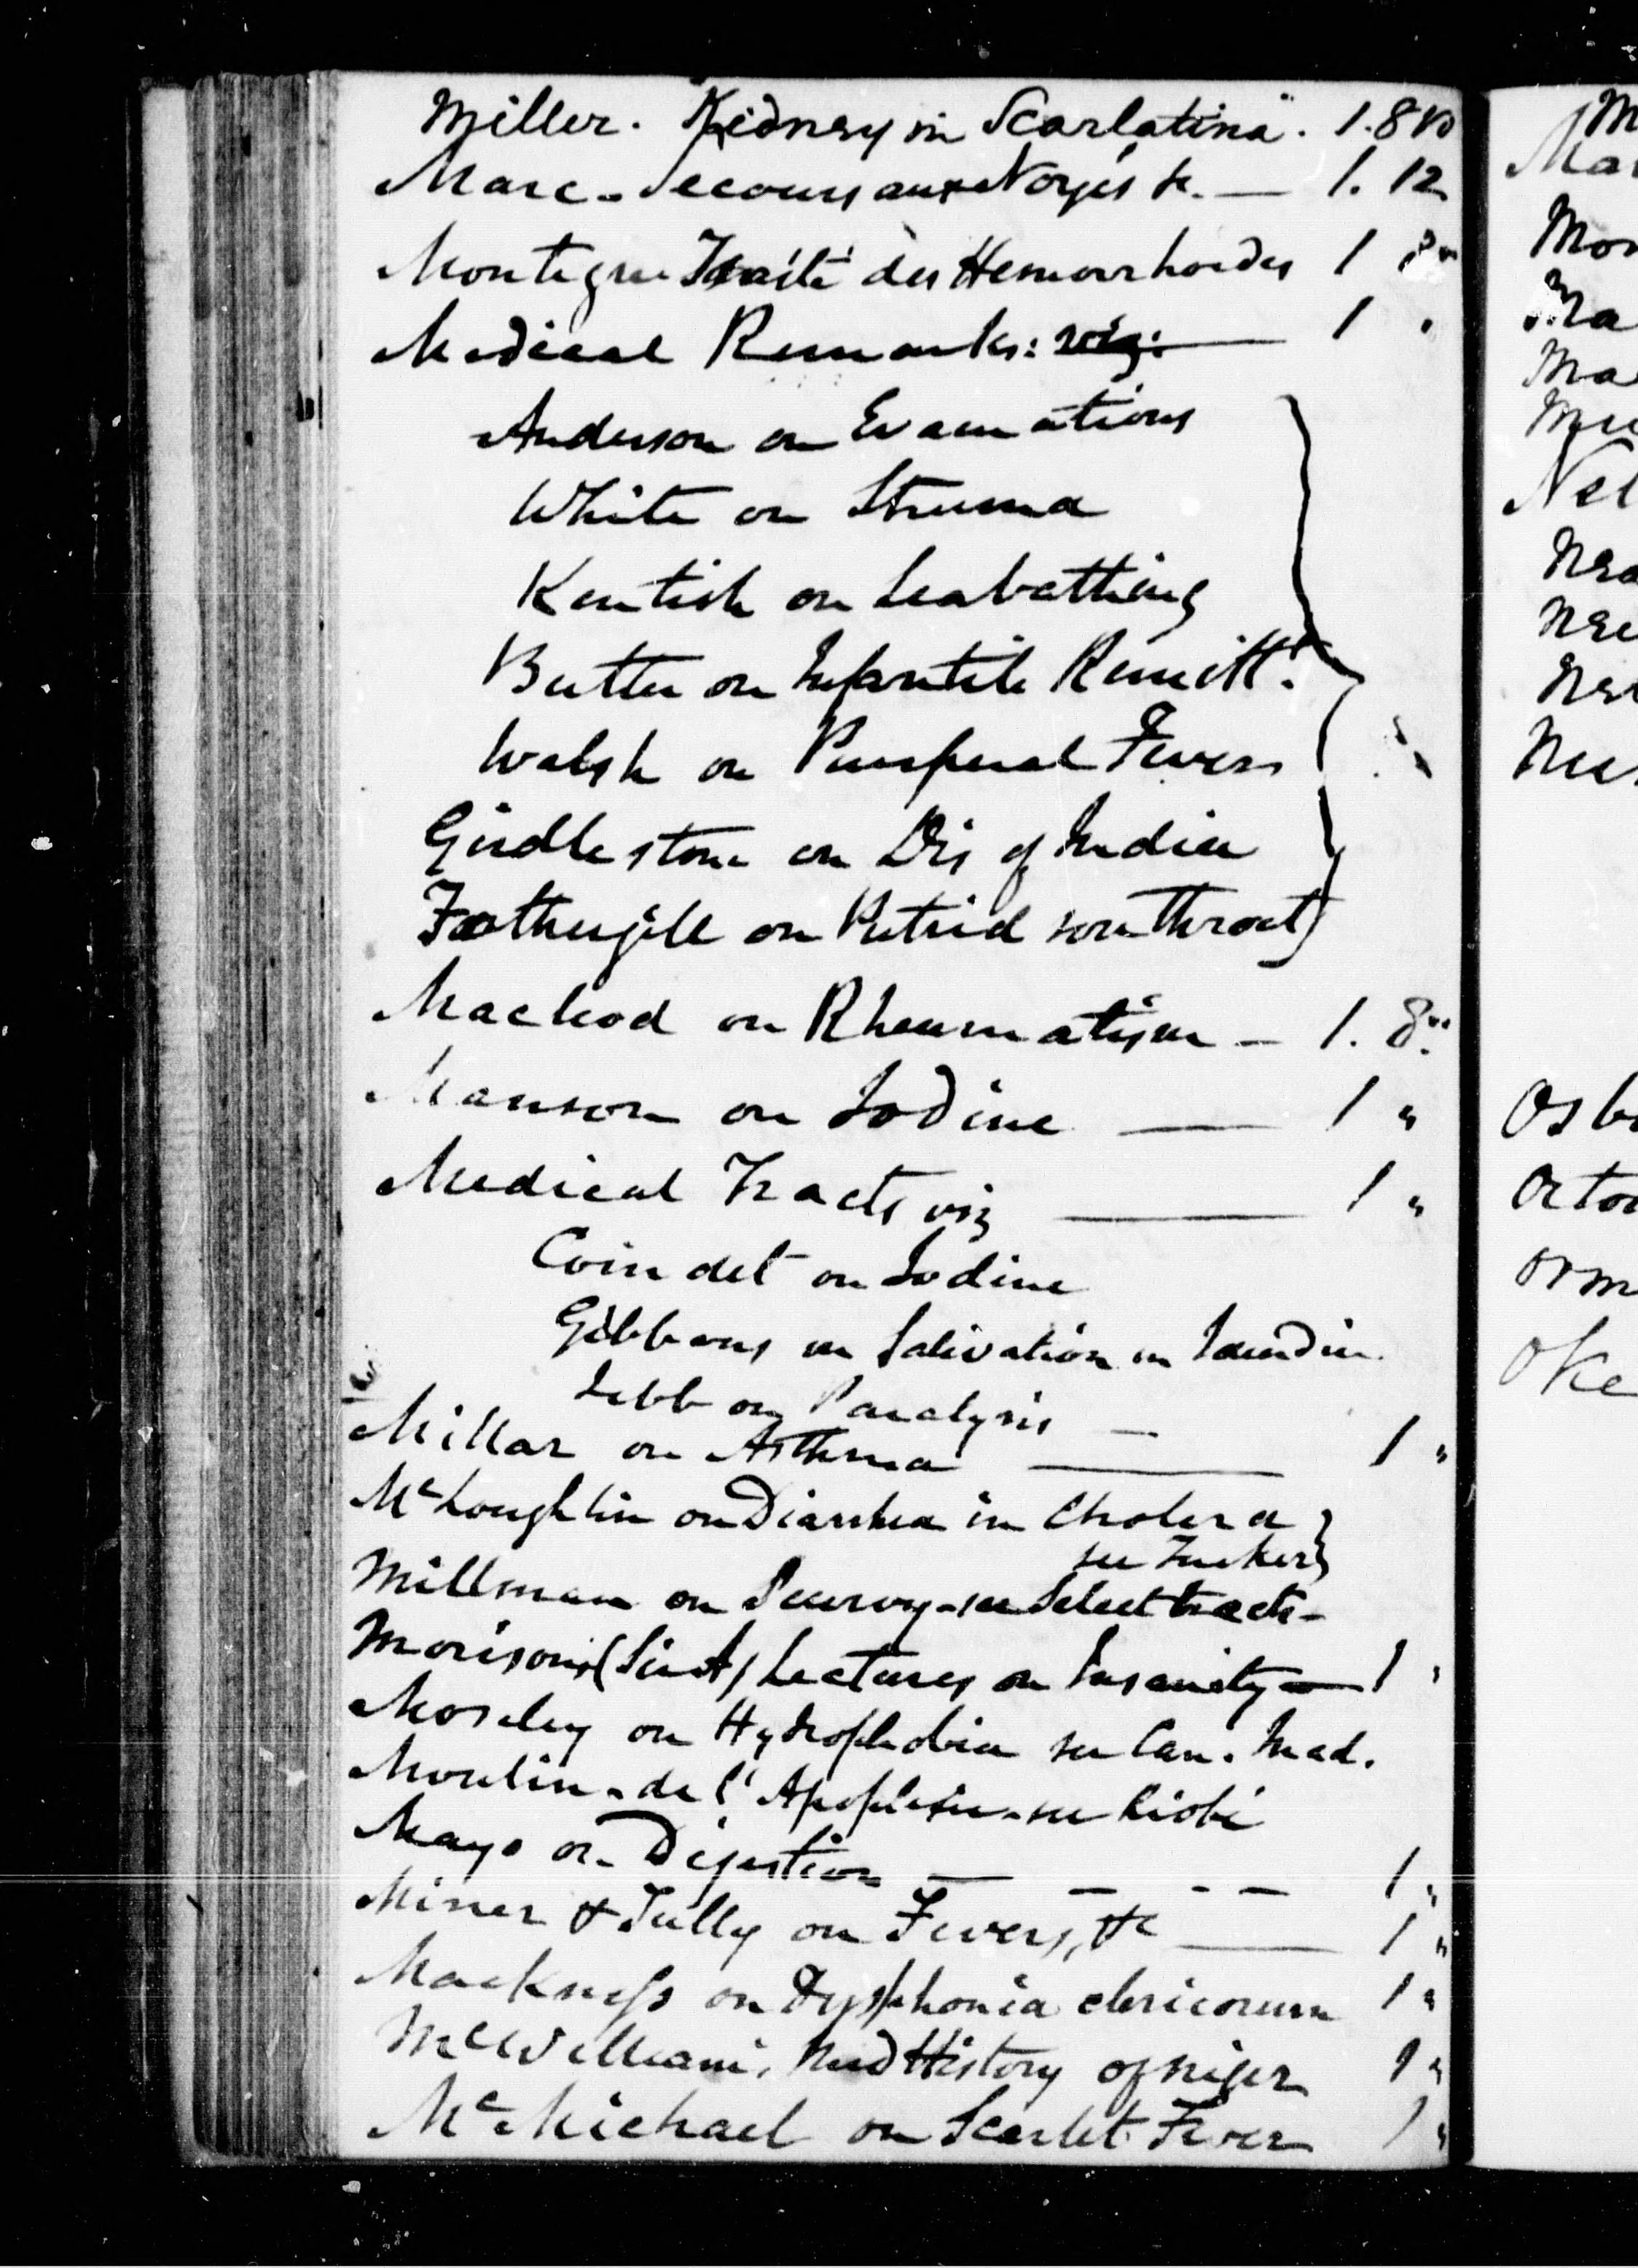 Miller. Kidney in Scarlatina. 1. 8vo
Marc. Secours aux Noyés &c. — 1. 12
Montegre Traité des Hemorrhoides 1 8vo
Medical Remarks: viz: — 1 "
Anderson on Evacuations
White on Struma
Kentish on Seabathing
Butter on Infantile Remitt.t
Walsh on Puerperal Fever
Girdlestone on Dis of India
Fothergill on Putrid sore throat
Macleod on Rheumatism — 1. 8vo
Manson on Iodine — 1 "
Medical Tracts viz — 1 "
Coindet on Iodine
Gibbons on Salivation in Jaundice
on Paralysis —
Millar on Asthma — 1 "
McLoughlin on Diarrhea in Cholera
see Tucker
Millman on Scurvy - see Select tracts -
Morison's (Sir A) Lectures on Insanity — 1 "
Moseley on Hydrophobia see Can. Mad.
Moulin - de l'Apoplexie - see Riobé
Mayo on Digestion — — - - 1 "
Miner & Tully on Fevers, &c — 1 "
Mackness on Dysphonia clericorum 1 "
McWilliam's Med History of niger 1 "
McMichael on Scarlet Fever 1 "
M
Mar
Mon
Ma
Ma
Mu
Nel
Osb
Orm
Oke